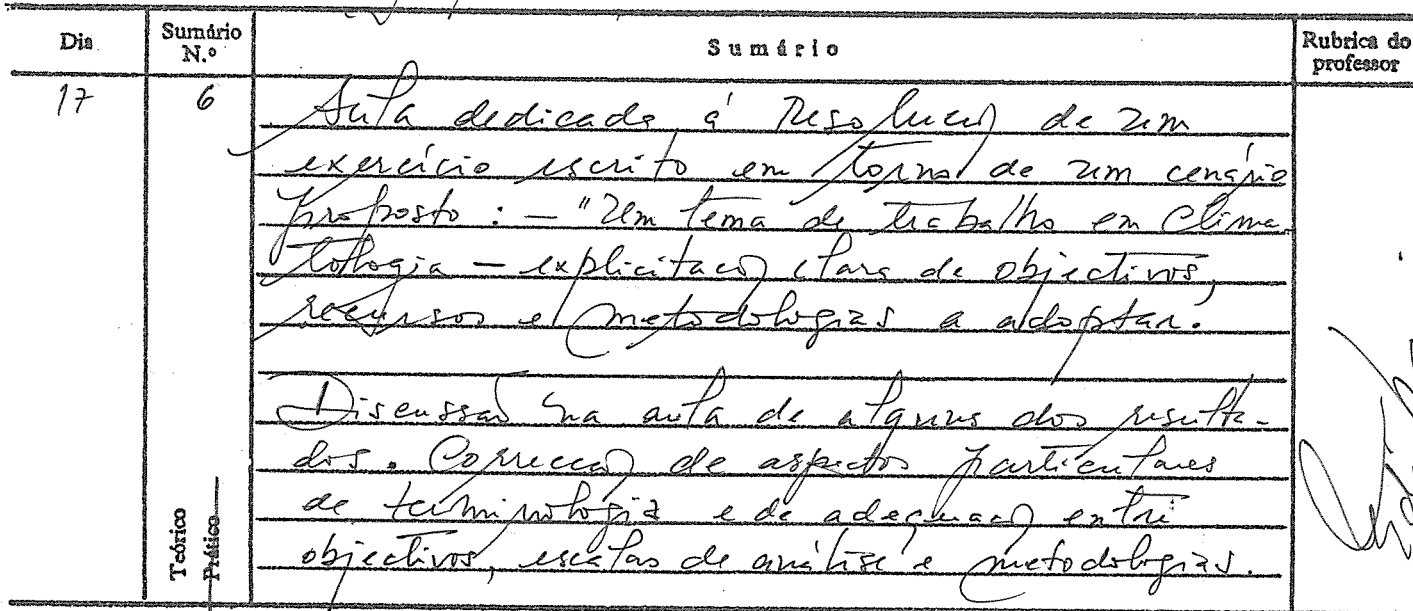 Dia
Sumário N.º
Sumário
Rubrica do professor
17
6
Aula dedicada á Resolução de um
exercício escrito em torno de um cenário
proposto : — "Um tema de trabalho em Clima-
tologia — explicitação clara de objectivos,
recursos e metodologias a adoptar.
Discussão na aula de alguns dos resulta-
dos. Correcção de aspectos particulares
de terminologia e de adequação entre
objectivos, escalas de análise e metodologias.
Teórico
Prático